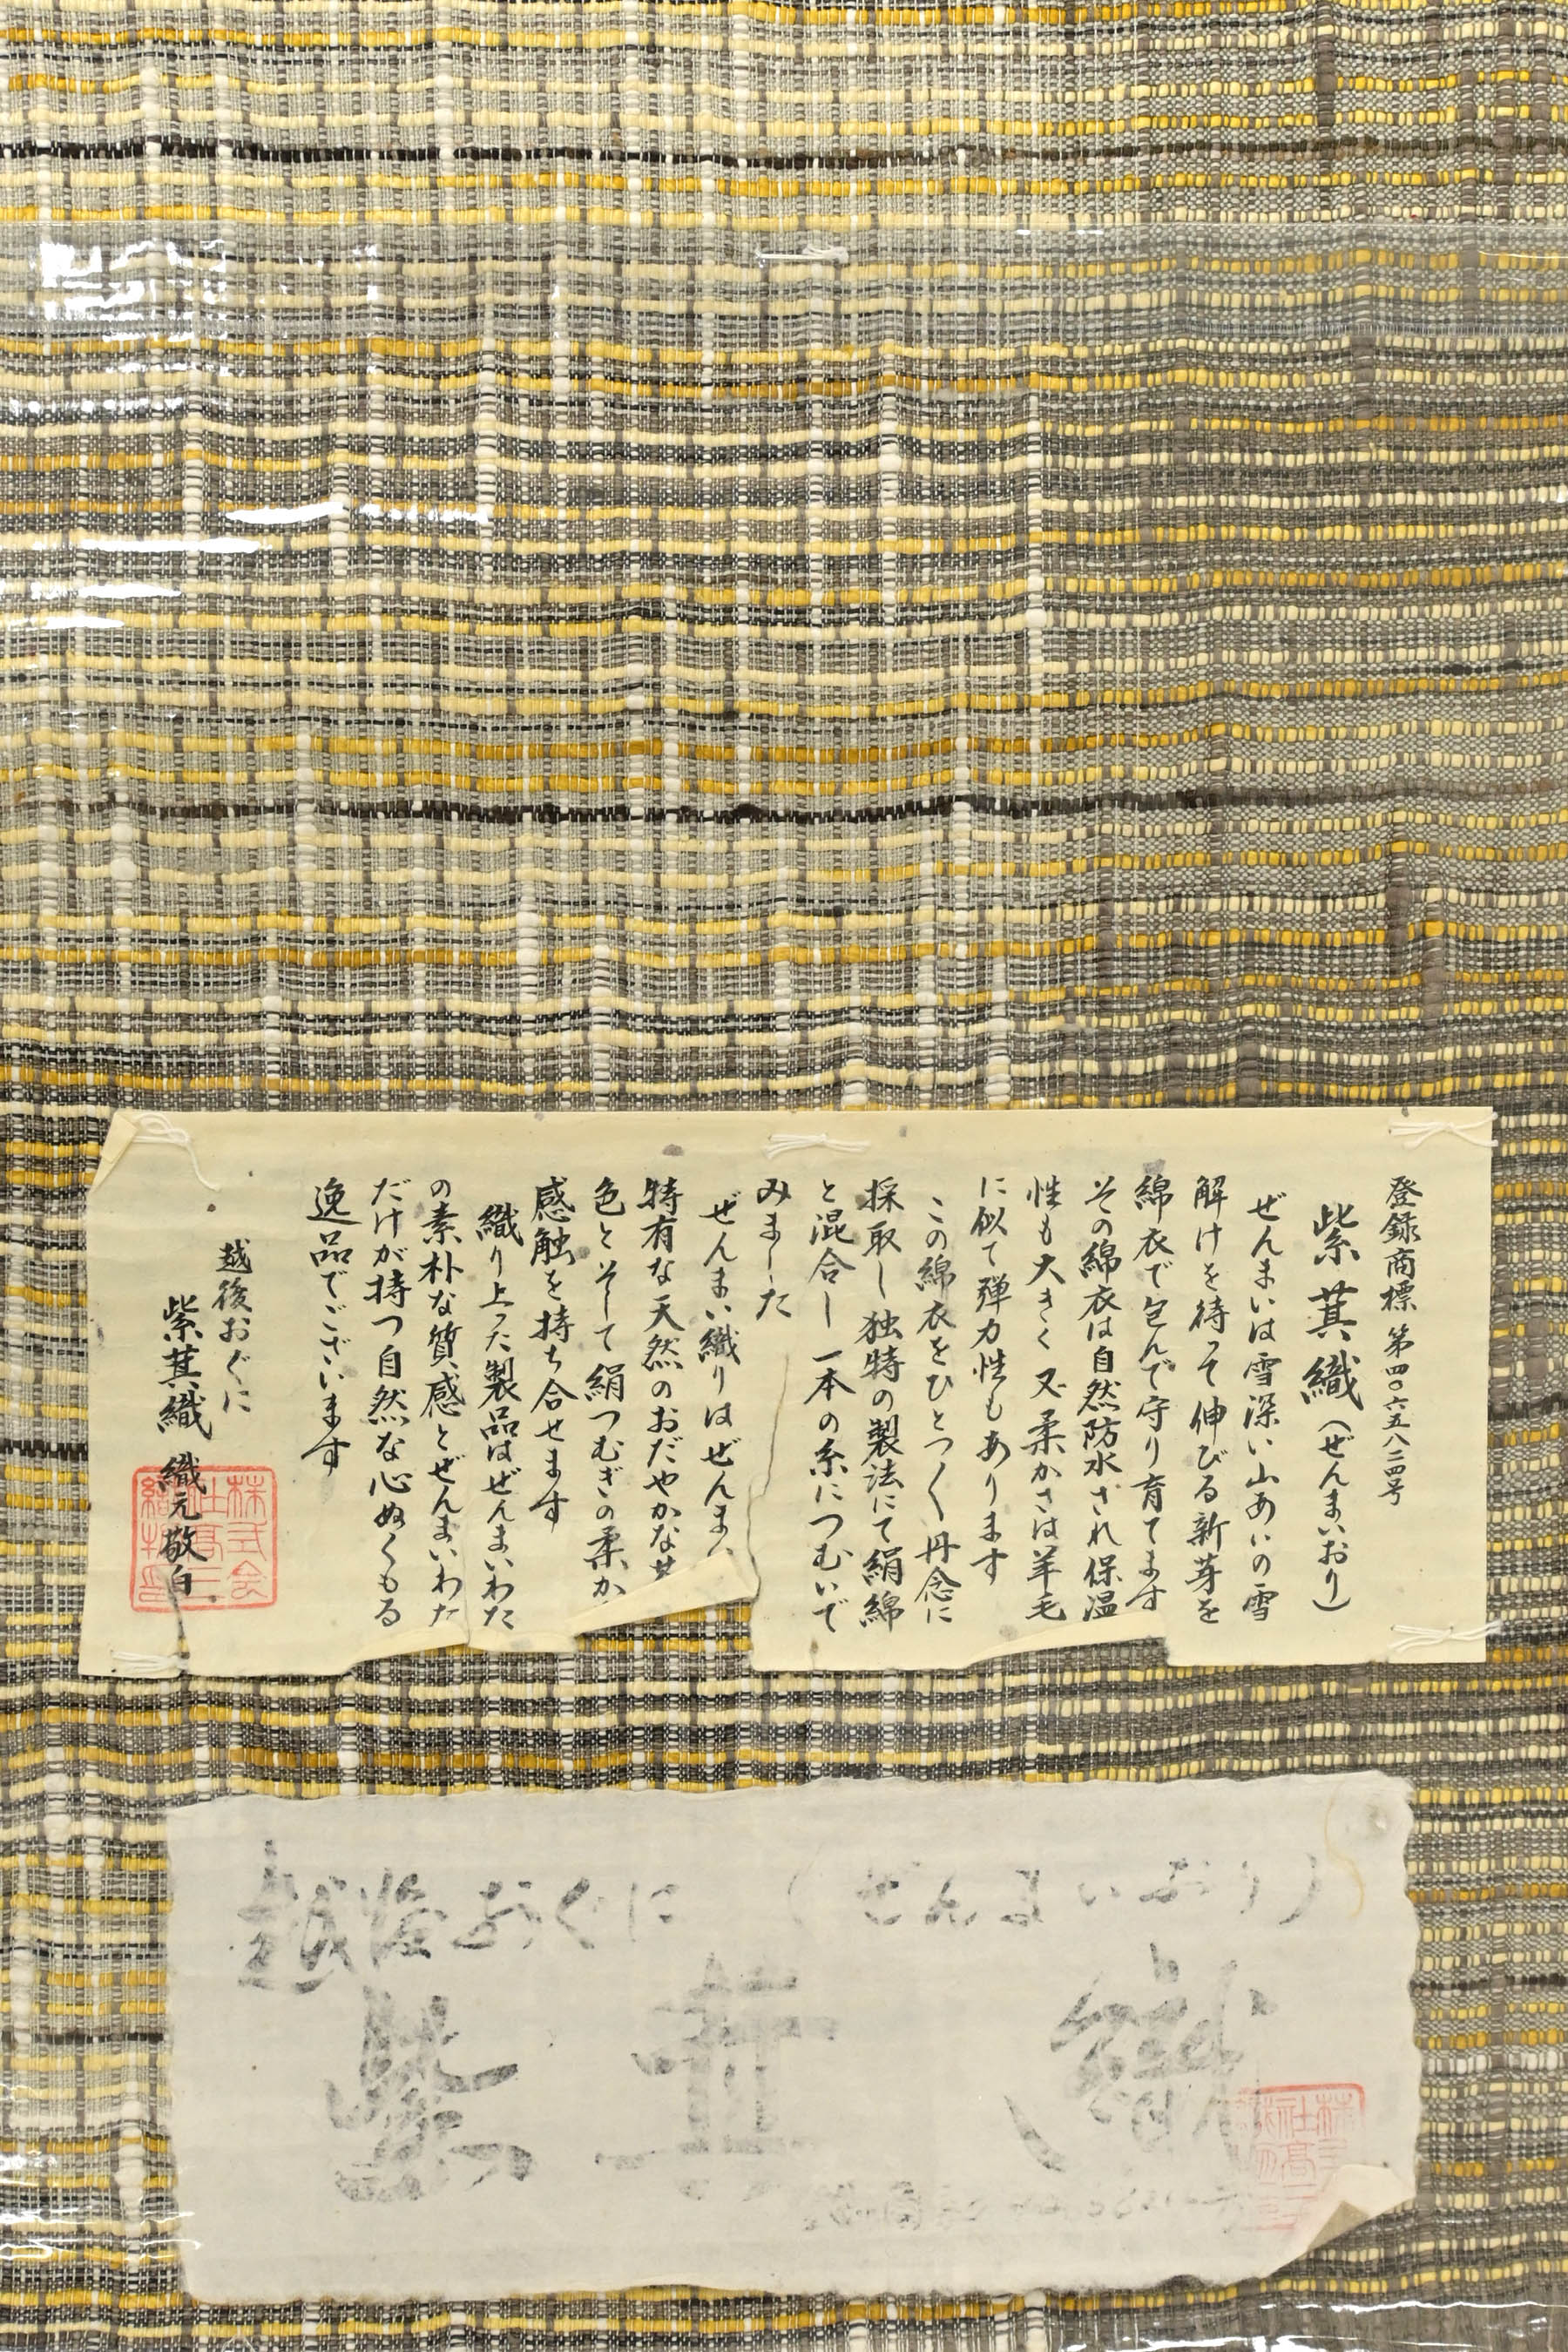 登録商標 第四〇六五八二四号
紫萁織（ぜんまいおり）
ぜんまいは雪深い山あいの雪
解けを待って伸びる新芽を
綿衣で包んで守り育てます
その綿衣は自然防水され保温
性も大きく又柔かさは羊毛
に似て弾力性もあります
この綿衣をひとつ〱丹念に
採取し独特の製法にて絹綿
と混合し一本の糸につむいで
みました
ぜんまい織りはぜんま
特有な天然のおだやかな
色とそして絹つむぎの柔か
感触を持ち合せます
織り上った製品はぜんまいわた
の素朴な質感とぜんまいわた
だけが持つ自然な心ぬくもる
逸品でございます
越後おぐに
紫萁織 織元敬白
株式会
社髙三
越後おぐに （ぜんまいおり）
紫萁織